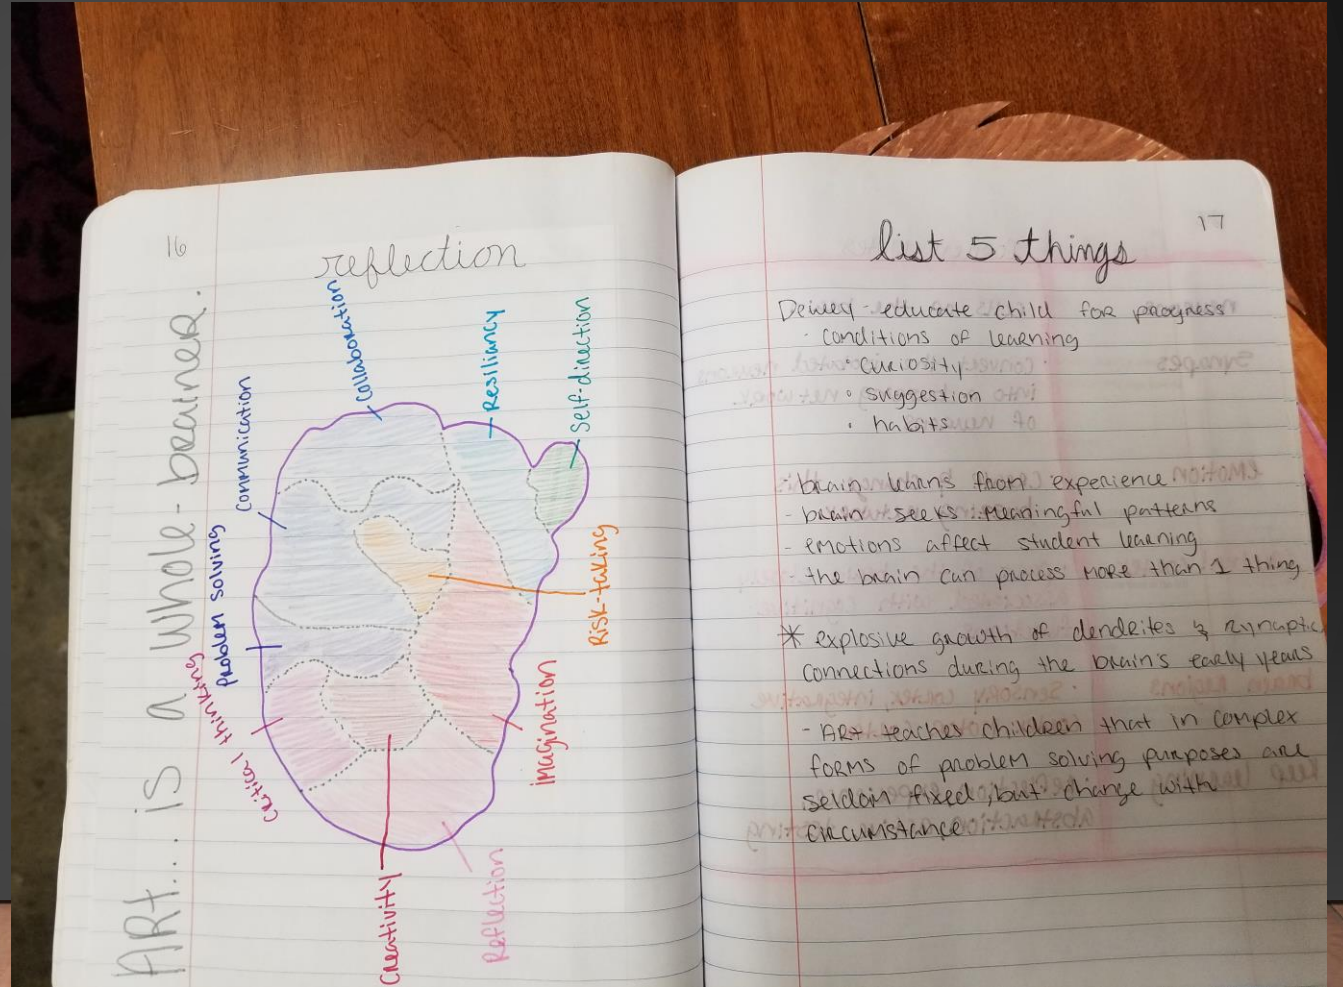 16
reflection
ART... is a whole-brainer.
Collaboration
Resiliancy
Self-direction
Communication
Problem solving
Risk-taking
Critical thinking
Imagination
Creativity
Reflection
17
list 5 things
Dewey - educate child for progress
- conditions of learning
• curiosity
• suggestion
• habits
- brain learns from experience
- brain seeks meaningful patterns
- emotions affect student learning
- the brain can process more than 1 thing
* explosive growth of dendrites & synaptic
connections during the brain's early years
- ARt teaches children that in complex
forms of problem solving purposes are
seldom fixed, but change with
circumstance